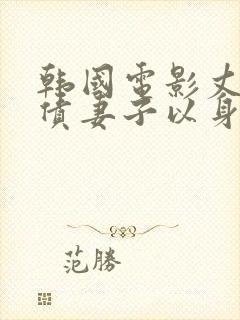 韩国电影丈
债妻子以身
范勝